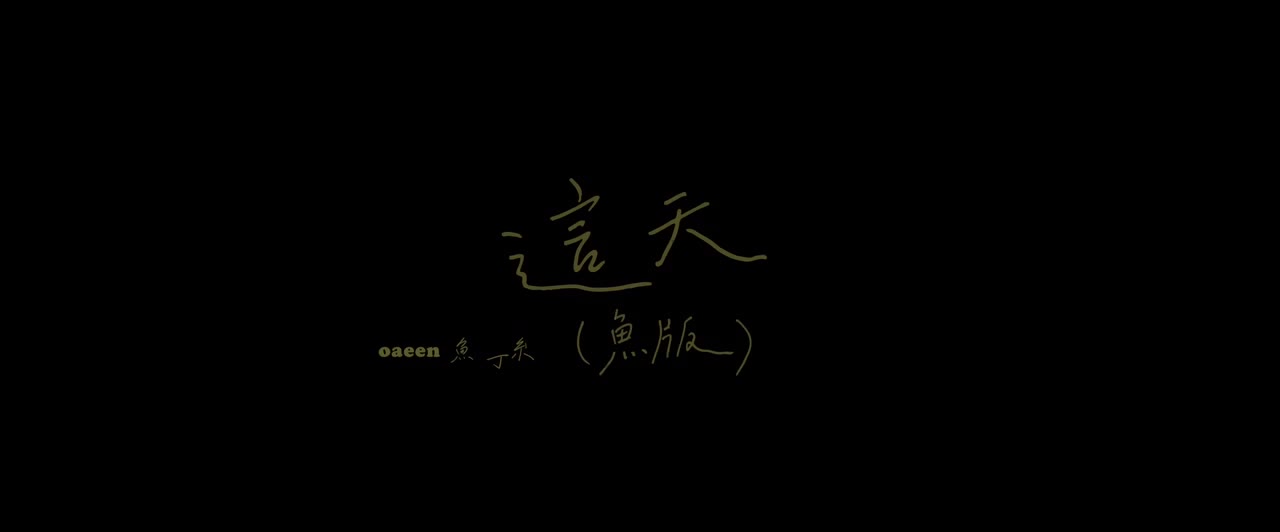 這天
oaeen 魚丁糸 (魚版)